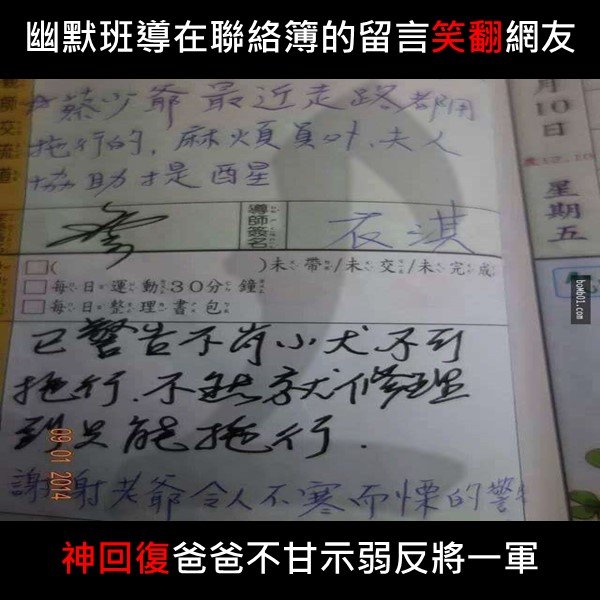 幽默班導在聯絡簿的留言笑翻網友
蔡少爺最近走路都用
拖行的,麻煩員外、夫人
協助提醒
導師簽名
衣淇
□( )未帶/未交/未完成
□每日運動30分鐘
□每日整理書包
已警告不肖小犬不可
拖行.不然就修理
到只能拖行.
謝謝老爺令人不寒而慄的警
師交流道
月10日
星期五
bomb01.com
09 01 2014
神回復爸爸不甘示弱反將一軍